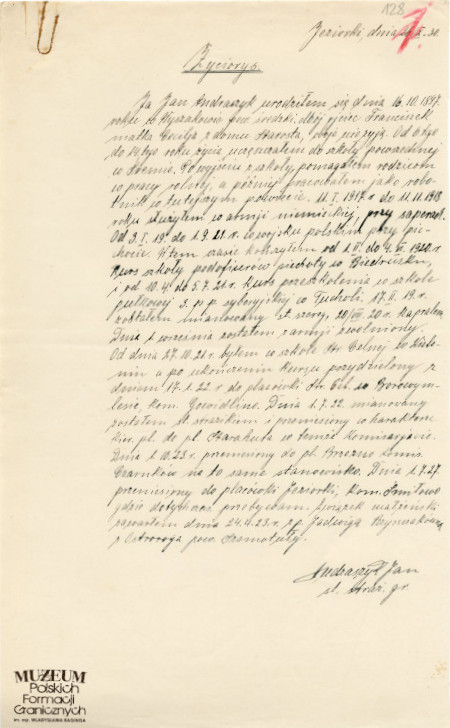 128
1.
Jeziorki, dnia X. 30.
Życiorys.
Ja Jan Andraszyk urodziłem się dnia 16. 10. 1897.
roku w pow. średzki. Mój ojciec Franciszek
matka Cecylja z domu Starosta, oboje nie żyją. Od 6tego
do 14tego roku życia uczęszczałem do szkoły powszechnej
w Śremie. Po wyjściu z szkoły, pomagałem rodzicom
w pracy rolnej, a później pracowałem jako robo-
tnik w tutejszym powiecie. 11. I. 1917 r. do 11. 11. 1918
roku służyłem w armji niemieckiej, przy saperach.
Od 3. I. 19. do 1. 9. 21. r. w wojsku polskim przy pie-
chocie. W tem czasie kończyłem od 1. II. do 4. VI. 1920. r.
kurs szkoły podoficerów piechoty w Biedrusku,
i od 10. 4. do 5. 7. 21. r. kurs przeszkolenia w szkole
pułkowej 3. p. p. syberyjskiej w Tucholi. 17. II. 19. r.
zostałem mianowany st. szereg., 20/VII. 20. r. kapralem.
Dnia 1 września zostałem z armji zwolniony.
Od dnia 27. 10. 21. r. byłem w szkole Str. Celnej w
a po ukończeniu kursu przydzielony z
dniem 17. 1. 22. r do placówki Str. Cel. w Borowym-
lesie, kom. Gowidlino. Dnia 1. 7. 22. mianowany
zostałem st. strażnikiem i przeniesiony w charakterze
kier. pl. do pl. w temże komisarjacie.
Dnia 1. 10. 23. r. przeniesiony do pl. Brzezno komis.
Czarnków na to samo stanowisko. Dnia 1. 7. 27.
przeniesiony do placówki Jeziorki, kom. Śmiłowo
gdzie dotychczas przebywam. Związek małżeński
zawarłem dnia 24. 4. 23. r. z p. Jadwigą
z Ostroroga pow. Szamotuły.
Andraszyk Jan
st. straż. gr.
MUZEUM
Polskich
Formacji
Granicznych
im. mjr. WŁADYSŁAWA RAGINISA